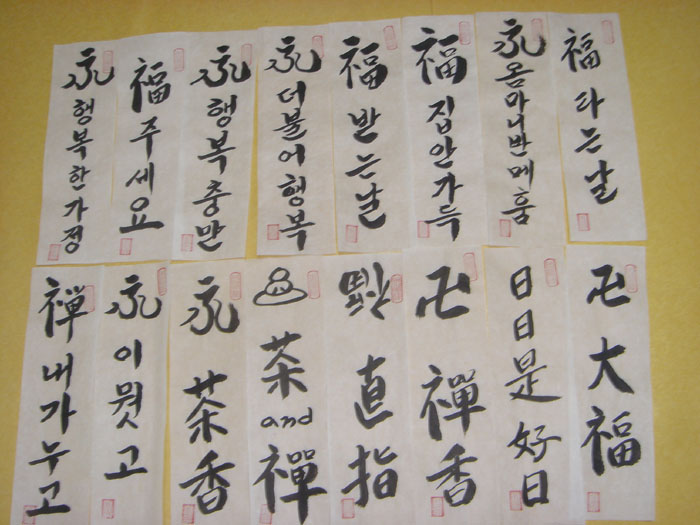 행복한가정
福주세요
행복충만
더불어행복
福받는날
福집안가득
옴마니반메훔
福타는날
禪내가누고
이뭣고
茶香
茶and禪
直指
卍禪香
日日是好日
卍大福